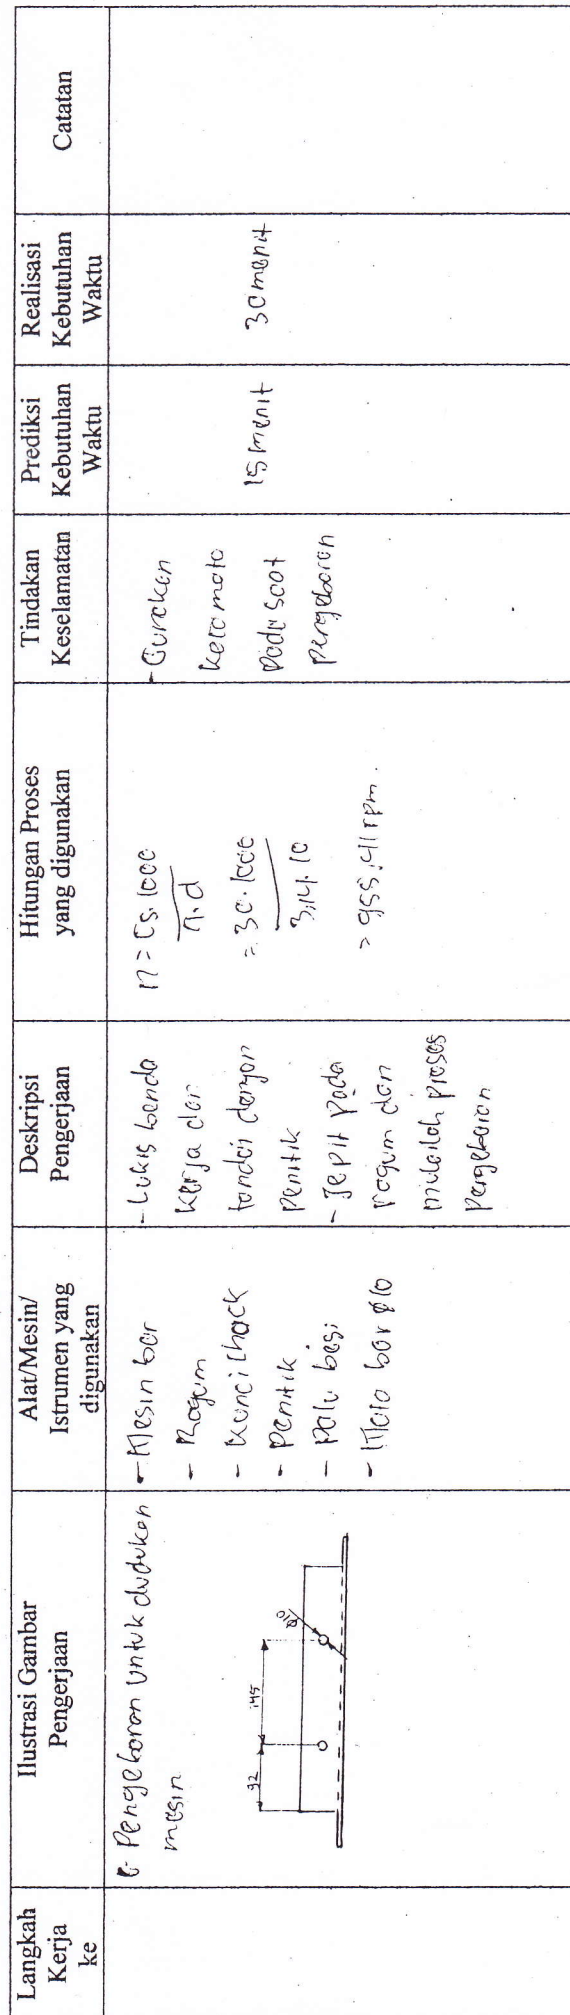 Langkah
Kerja
ke
Ilustrasi Gambar
Pengerjaan
Alat/Mesin/
Istrumen yang
digunakan
Deskripsi
Pengerjaan
Hitungan Proses
yang digunakan
Tindakan
Keselamatan
Prediksi
Kebutuhan
Waktu
Realisasi
Kebutuhan
Waktu
Catatan
Pengeboran untuk dudukan
mesin
92
145
Ø10
- Mesin bor
- Ragum
- Kunci Chack
- Penitik
- Palu besi
- Mata bor Ø10
- Lukis benda
kerja dan
tandai dengan
Penitik
- Jepit pada
ragum dan
mulailah proses
Pengeboran
n = Cs.1000
π.d
= 30.1000
3,14.10
= 955,41 rpm.
- Gunakan
kaca mata
Pada saat
Pengeboran
15 menit
30 menit